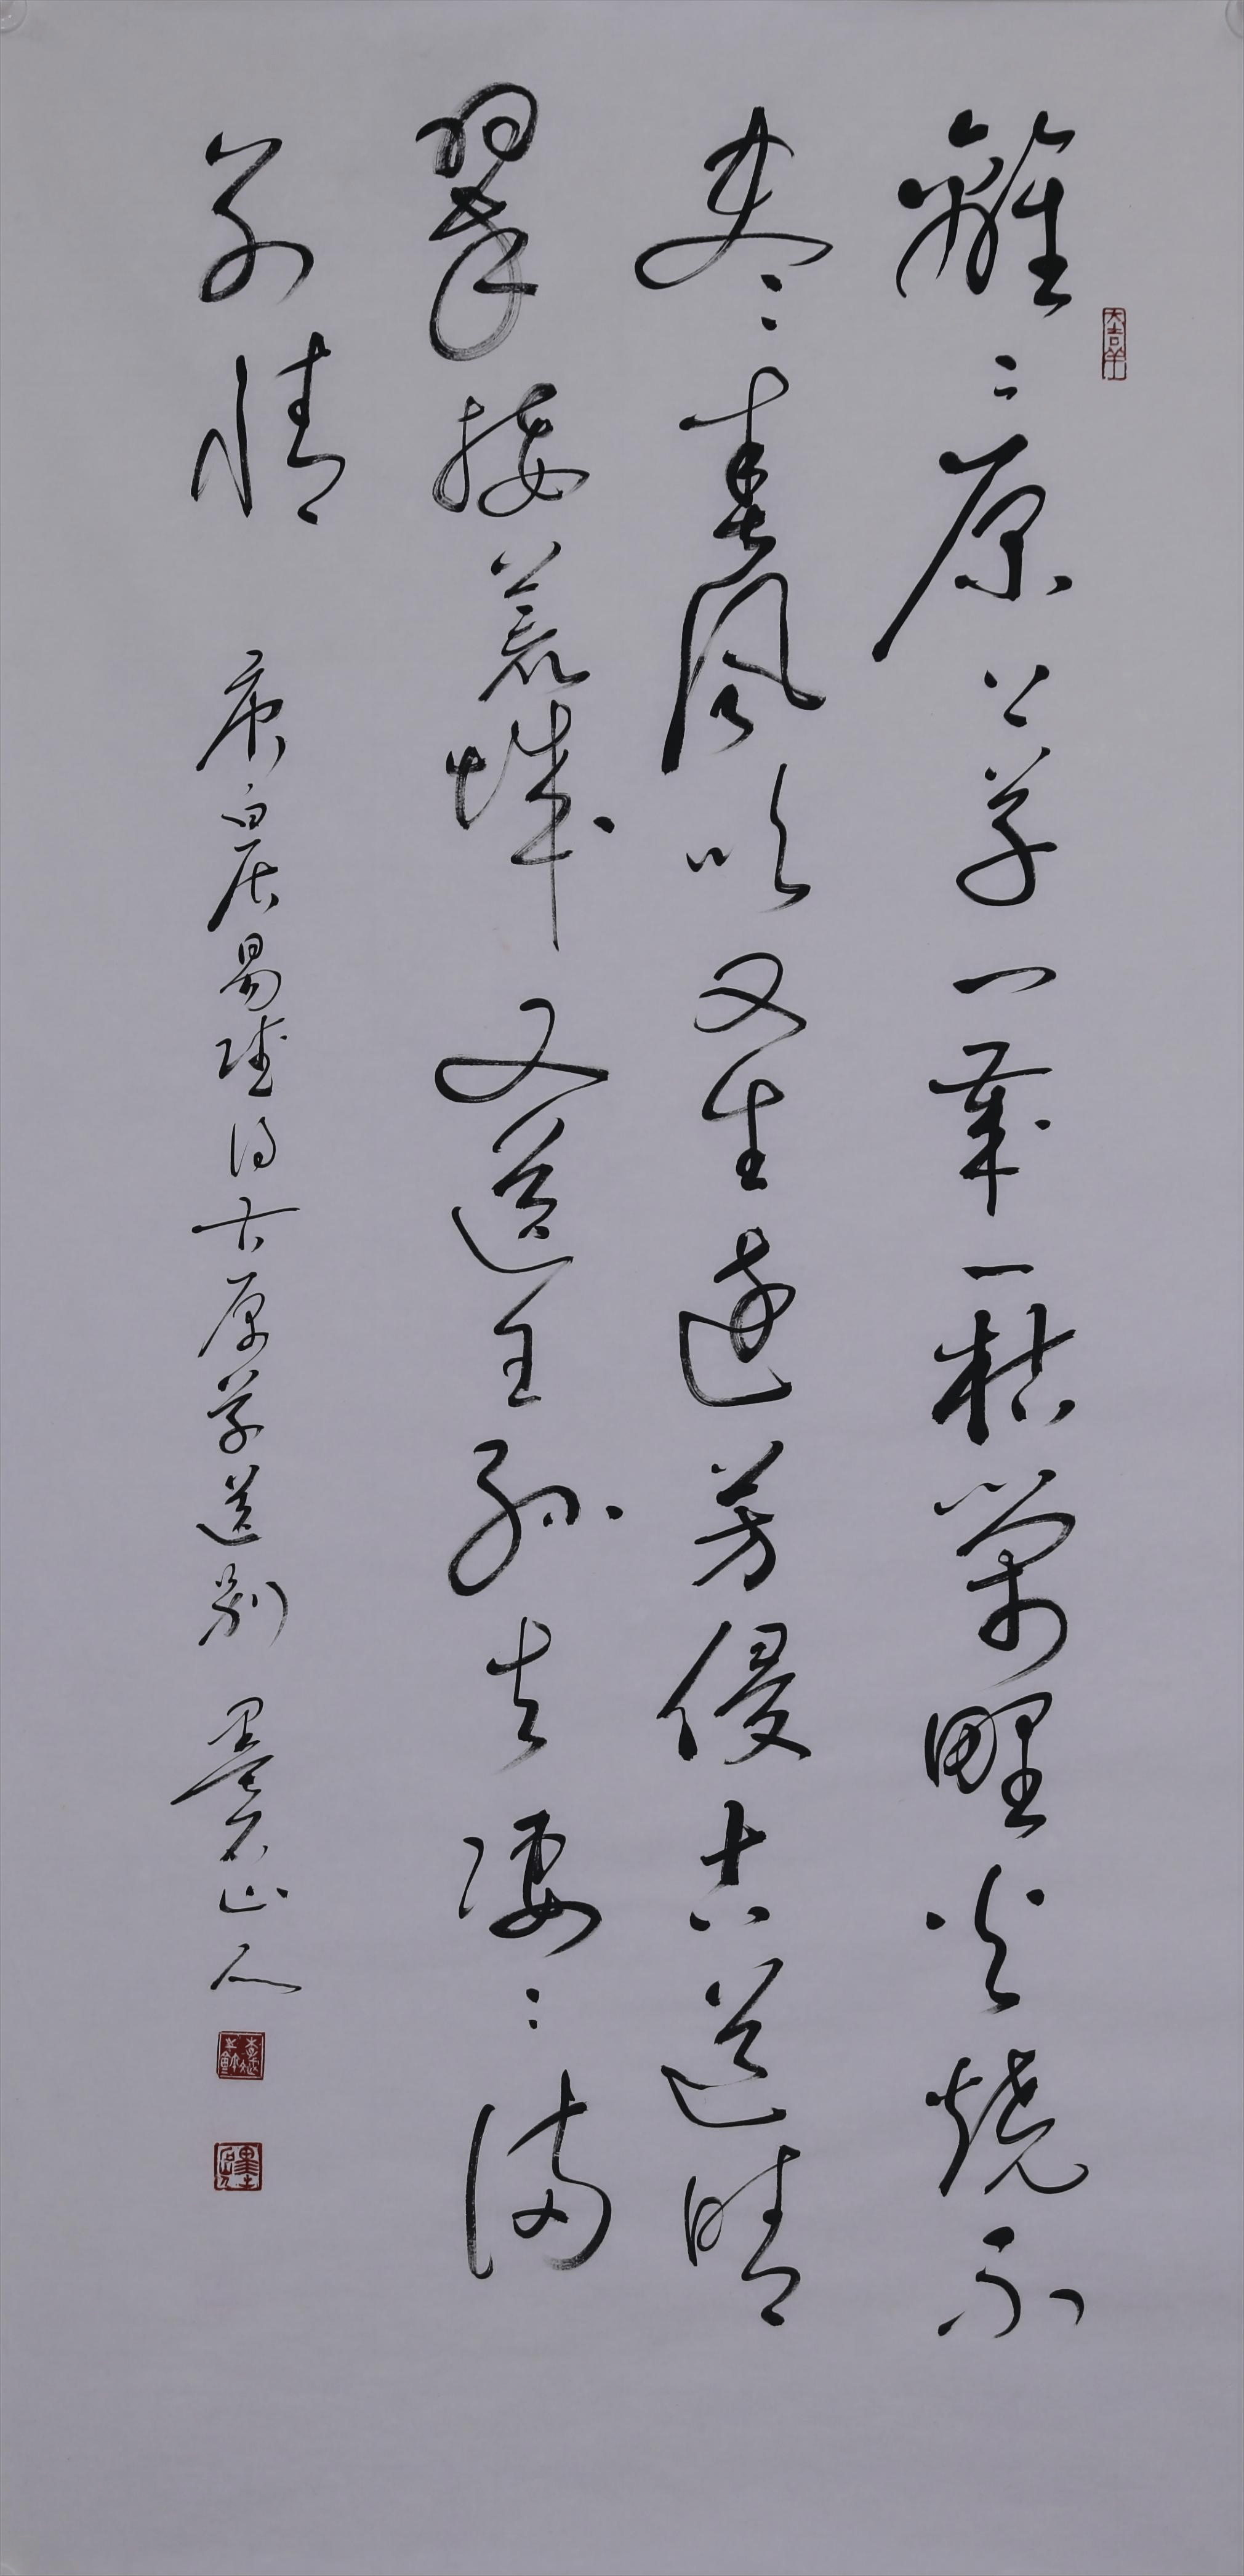 大吉羊
離〻原上草一歲一枯榮野火燒不
盡春風吹又生遠芳侵古道晴
翠接荒城又送王孫去凄〻滿
別情
唐白居易賦得古原草送別 墨石山人